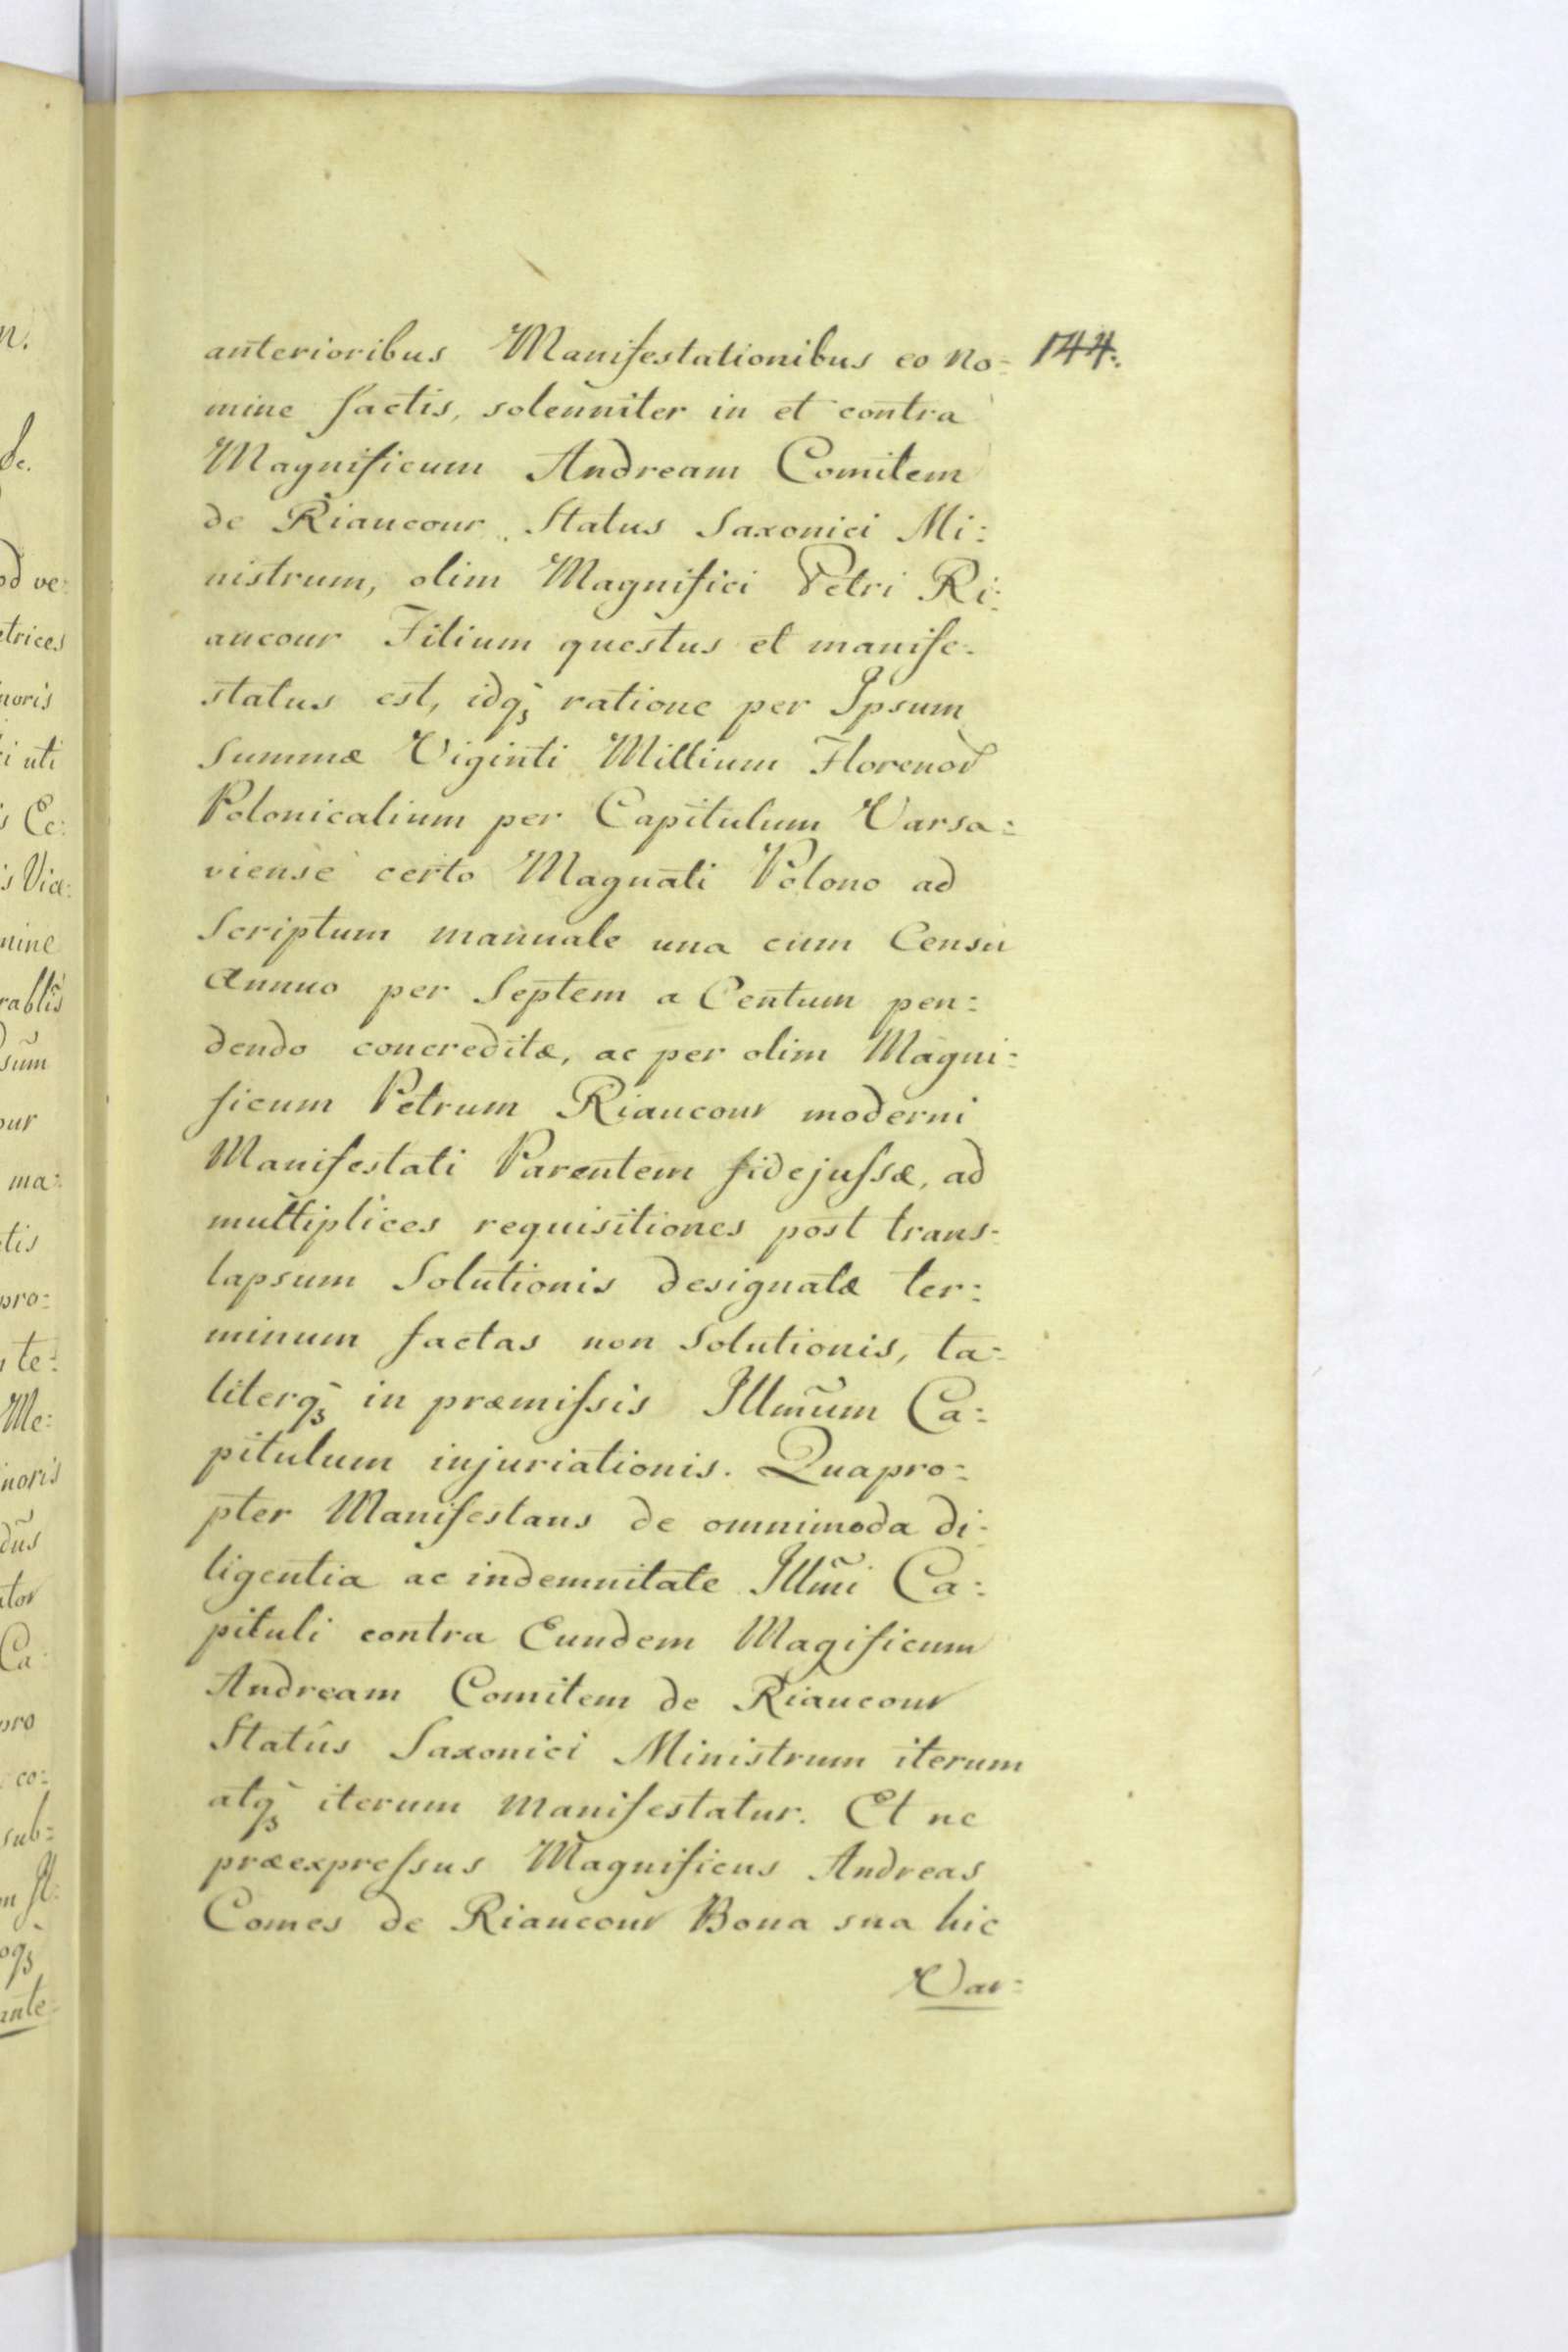 anterioribus Manifestationibus eo no= 144.
mine factis, solenniter in et contra
Magnificum Andream Comitem
de Riaucour Status Saxonici Mi=
nistrum, olim Magnifici Petri Ri=
aucour Filium questus et manife=
status est, idq̃ꝫ ratione per Ipsum
Summæ Viginti Millium Florenoꝝ
Polonicalium per Capitulum Varsa=
viense certo Magnati Polono ad
Scriptum manuale una cum Censu
Annuo per Septem a Centum pen=
dendo concreditæ, ac per olim Magni=
ficum Petrum Riaucour moderni
Manifestati Parentem fidejuſsæ, ad
multiplices requisitiones post trans=
lapsum Solutionis designatæ ter=
minum factas non Solutionis, ta=
literq̃ꝫ in præmiſsis Illmũm Ca=
pitulum injuriationis. Quapro=
pter Manifestans de omnimoda di=
ligentia ac indemnitate Illmĩ Ca=
pituli contra Eundem Magificum
Andream Comitem de Riaucour
Statûs Saxonici Ministrum iterum
atq̃ꝫ iterum manifestatur. Et ne
præexpreſsus Magnificus Andreas
Comes de Riaucour Bona sua hic
Var=